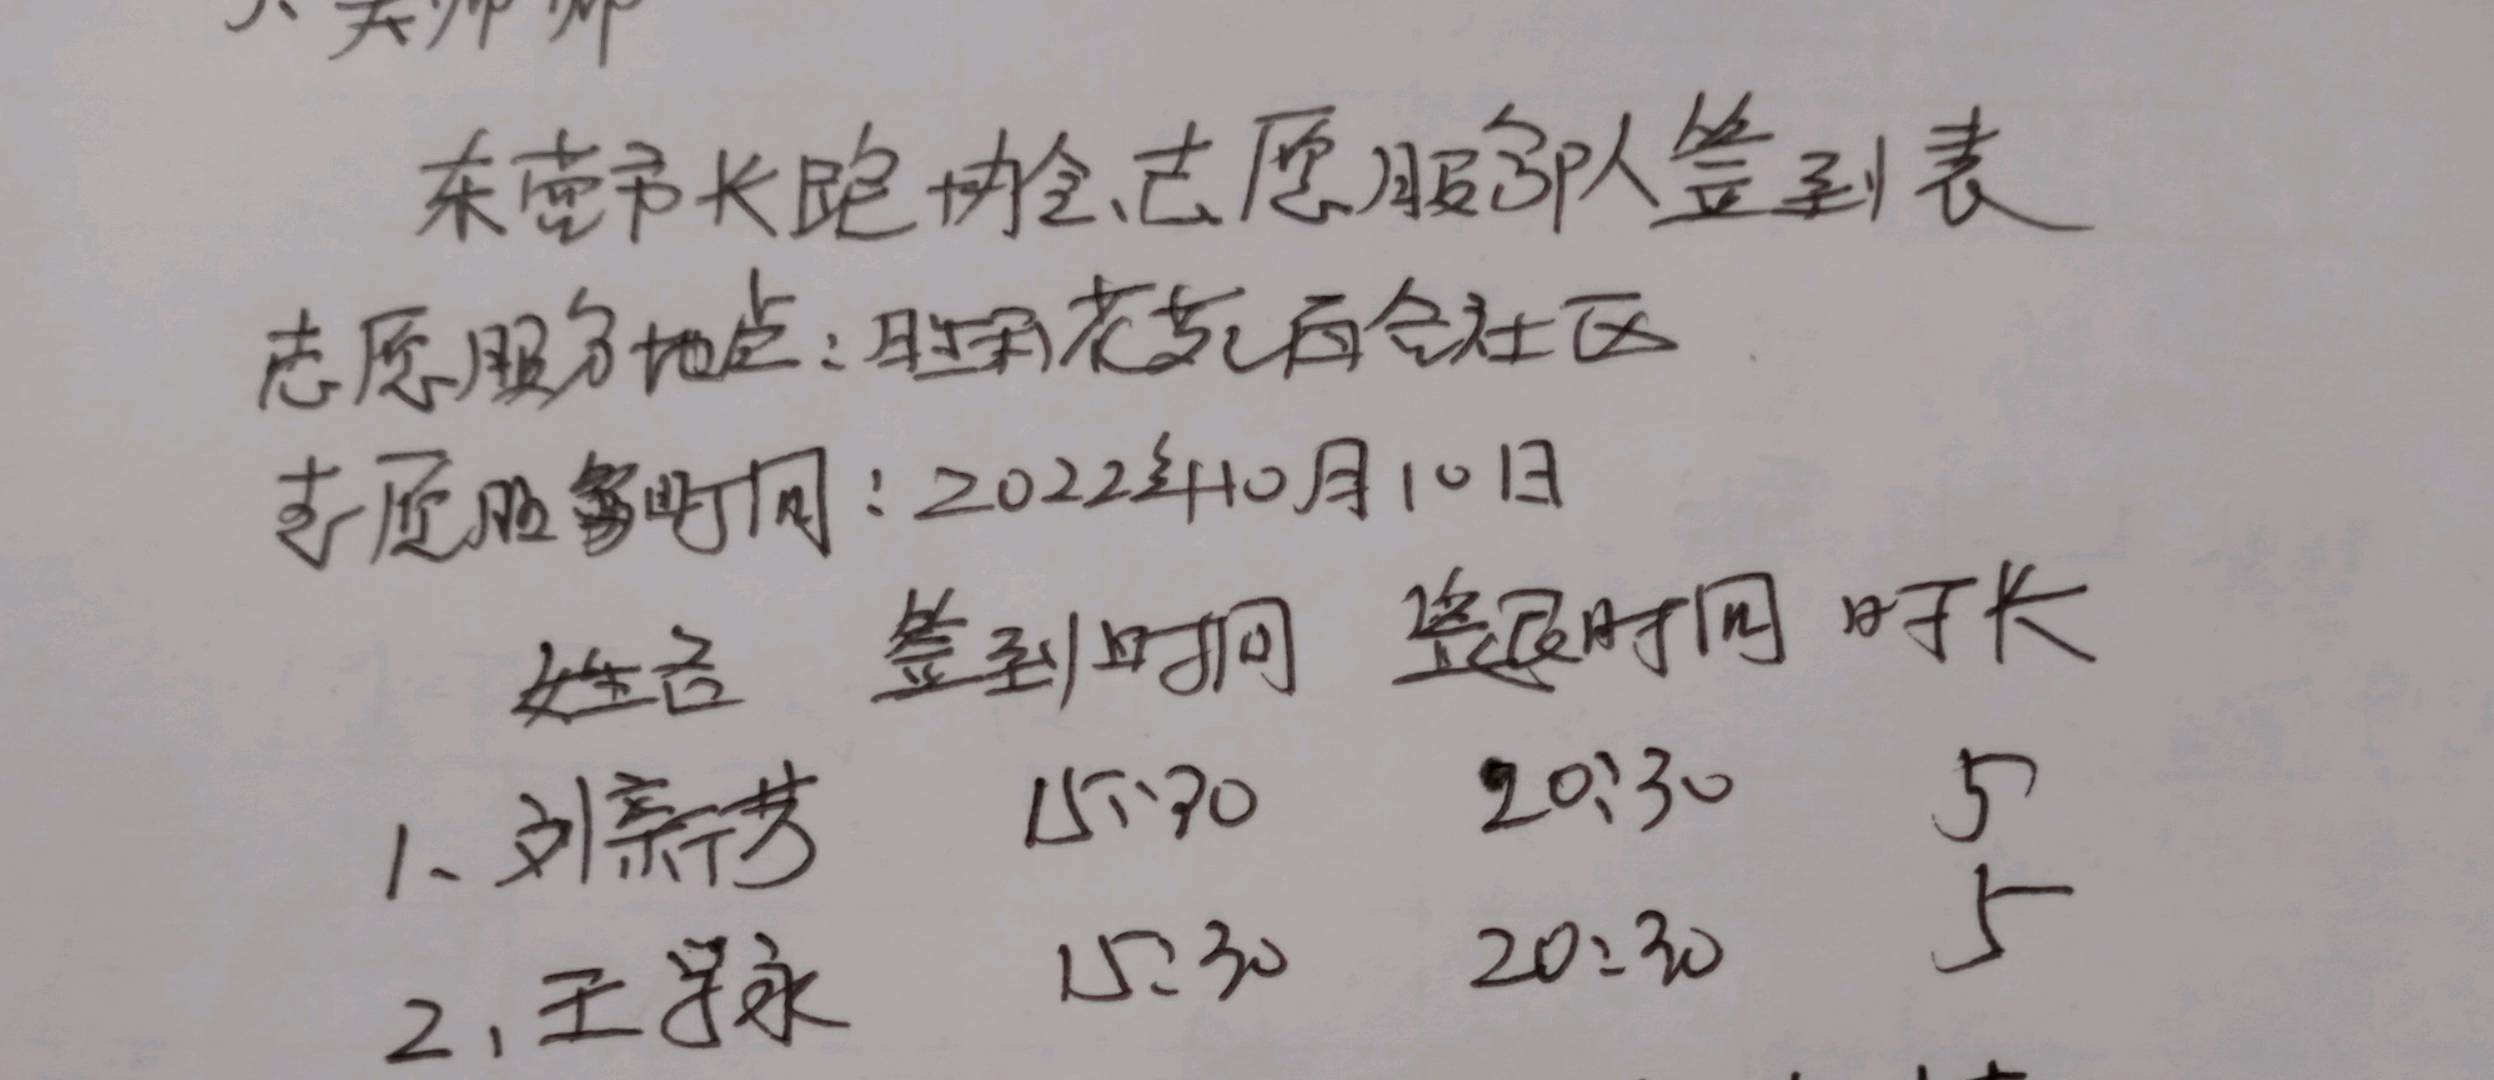 东营市长跑协会志愿服务队签到表
志愿服务地点：胜利花苑百合社区
志愿服务时间：2022年10月10日
姓名 签到时间 签退时间 时长
1、刘新芳 15:30 20:30 5
2、王学永 15:30 20:30 5